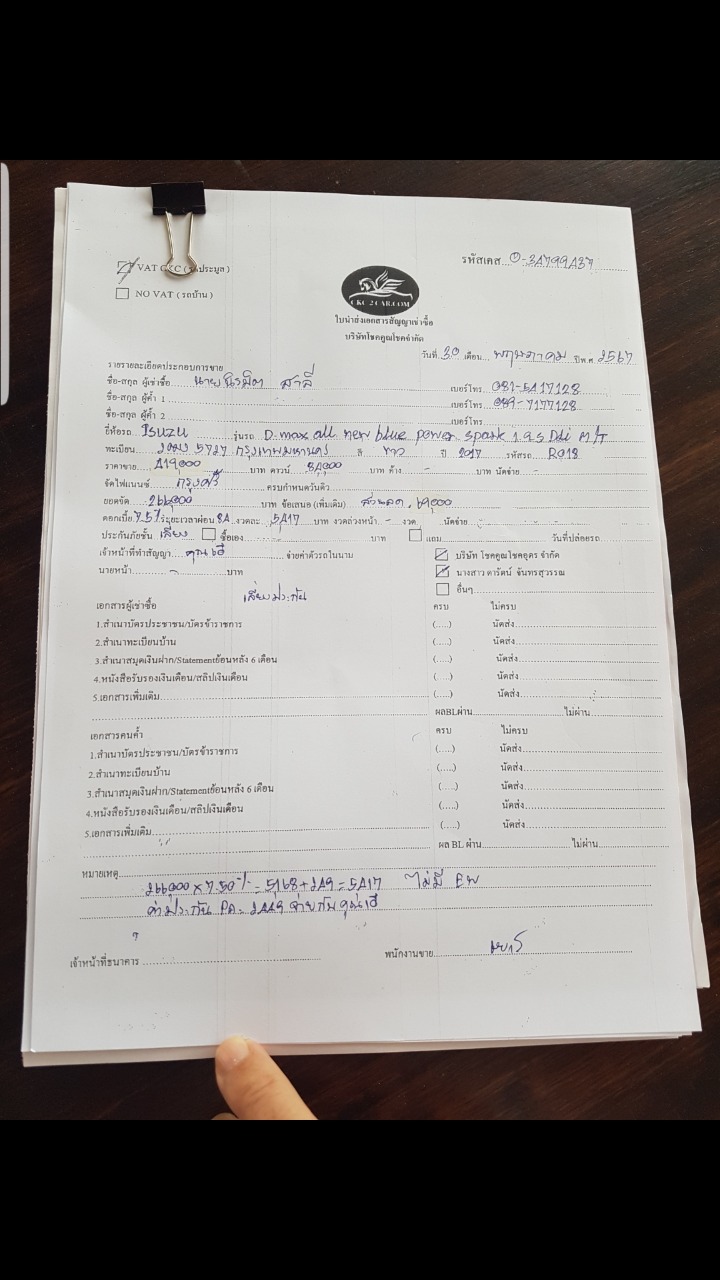 VAT CKC (รถประมูล)
รหัสเคส....0-3A799A37
NO VAT (รถบ้าน)
CKC 2 CAR.COM
ใบนำส่งเอกสารสัญญาเช่าซื้อ
บริษัทโชคคูณโชคจำกัด
วันที่ 30 เดือน พฤษภาคม ปีพ.ศ. 2567
รายรายละเอียดประกอบการขาย
ชื่อ-สกุล ผู้เช่าซื้อ นาย สาลี เบอร์โทร 081-5A17128
ชื่อ-สกุล ผู้ค้ำ 1 เบอร์โทร 089-7177128
ชื่อ-สกุล ผู้ค้ำ 2 เบอร์โทร
ยี่ห้อรถ Isuzu รุ่นรถ D.max all new blue power spark 1.9 S Ddi M/T
ทะเบียน 5727 กรุงเทพมหานคร สี ขาว ปี 2017 รหัสรถ R018
ราคาขาย A19,000 บาท ดาวน์ 8A,000 บาท ค้าง - บาท นัดจ่าย -
จัดไฟแนนซ์ กรุงศรี ครบกำหนดวันดิว
ยอดจัด 266,000 บาท ข้อเสนอ (เพิ่มเติม) ส่วนลด 69,000
ดอกเบี้ย 7.5% ระยะเวลาผ่อน 8A งวดละ 5A17 บาท งวดล่วงหน้า - งวด นัดจ่าย
ประกันภัยชั้น เสี่ยง ซื้อเอง บาท แถม วันที่ปล่อยรถ
เจ้าหน้าที่ทำสัญญา จ่ายค่าตัวรถในนาม บริษัท โชคคูณโชคอุดร จำกัด
นายหน้า - บาท นางสาว ดารัตน์ จันทรสุวรรณ
อื่นๆ
เสี่ยงประกัน
เอกสารผู้เช่าซื้อ ครบ ไม่ครบ
1.สำเนาบัตรประชาชน/บัตรข้าราชการ (....) นัดส่ง
2.สำเนาทะเบียนบ้าน (....) นัดส่ง
3.สำเนาสมุดเงินฝาก/Statementย้อนหลัง 6 เดือน (....) นัดส่ง
4.หนังสือรับรองเงินเดือน/สลิปเงินเดือน (....) นัดส่ง
5.เอกสารเพิ่มเติม (....) นัดส่ง
ผลBLผ่าน ไม่ผ่าน
เอกสารคนค้ำ ครบ ไม่ครบ
1.สำเนาบัตรประชาชน/บัตรข้าราชการ (....) นัดส่ง
2.สำเนาทะเบียนบ้าน (....) นัดส่ง
3.สำเนาสมุดเงินฝาก/Statementย้อนหลัง 6 เดือน (....) นัดส่ง
4.หนังสือรับรองเงินเดือน/สลิปเงินเดือน (....) นัดส่ง
5.เอกสารเพิ่มเติม (....) นัดส่ง
ผล BL ผ่าน ไม่ผ่าน
หมายเหตุ
266,000 x 7.50% = 5168 + 2A9 = 5A17 ไม่มี
ค่าประกัน PA = 2AA9 จ่ายกับคุณ
เจ้าหน้าที่ธนาคาร พนักงานขาย